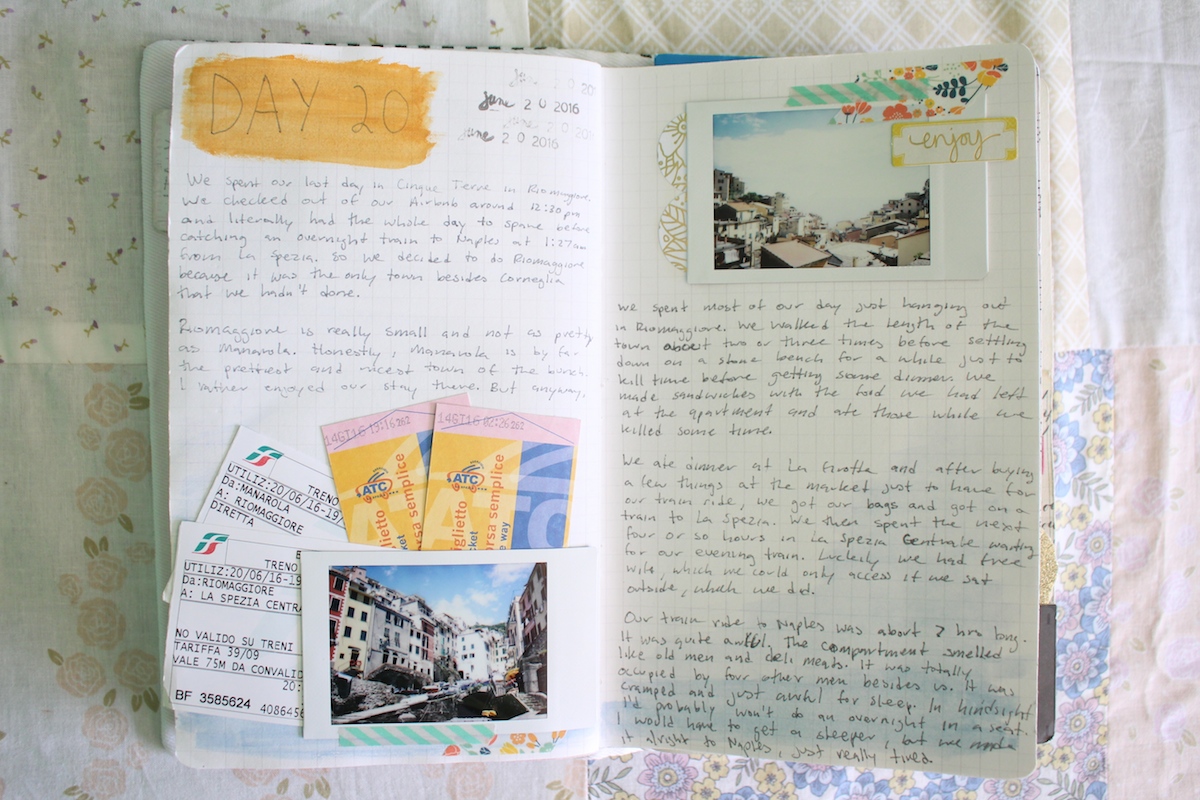 DAY 20
June 20 2016
June 20 2016
We spent our last day in Cinque Terre in Riomaggiore.
We checked out of our Airbnb around 12:30pm
and literally had the whole day to spare before
catching an overnight train to Naples at 1:27am
from La Spezia. So we decided to do Riomaggiore
because it was the only town besides Corneglia
that we hadn't done.
Riomaggiore is really small and not as pretty
as Manarola. Honestly, Manarola is by far
the prettiest and nicest town of the bunch.
I rather enjoyed our stay there. But anyway,
TRENO
UTILIZ:20/06/16-19
Da:MANAROLA
A: RIOMAGGIORE
DIRETTA
TRENO
UTILIZ:20/06/16-19
Da:RIOMAGGIORE
A: LA SPEZIA CENTRA
NO VALIDO SU TRENI
TARIFFA 39/09
VALE 75M DA CONVALID
20:
BF 3585624 4086456
14GI16 19:16 262
ATC
glietto
orsa semplice
ket
14GI16 02:26 262
ATC
iglietto
orsa semplice
cket
e way
enjoy
we spent most of our day just hanging out
in Riomaggiore. We walked the length of the
town about two or three times before settling
down on a stone bench for a while just to
kill time before getting some dinner. We
made sandwiches with the food we had left
at the apartment and ate those while we
killed some time.
We ate dinner at La Grotta and after buying
a few things at the market just to have for
our train ride, we got our bags and got on a
train to La Spezia. We then spent the next
four or so hours in La Spezia Centrale waiting
for our evening train. Luckily we had free
wifi, which we could only access if we sat
outside, which we did.
Our train ride to Naples was about 7 hrs long.
It was quite awful. The compartment smelled
like old men and deli meats. It was totally
occupied by four other men besides us. It was
cramped and just awful for sleep. In hindsight
I'd probably won't do an overnight in a seat.
I would have to get a sleeper, but we made
it alright to Naples, just really tired.